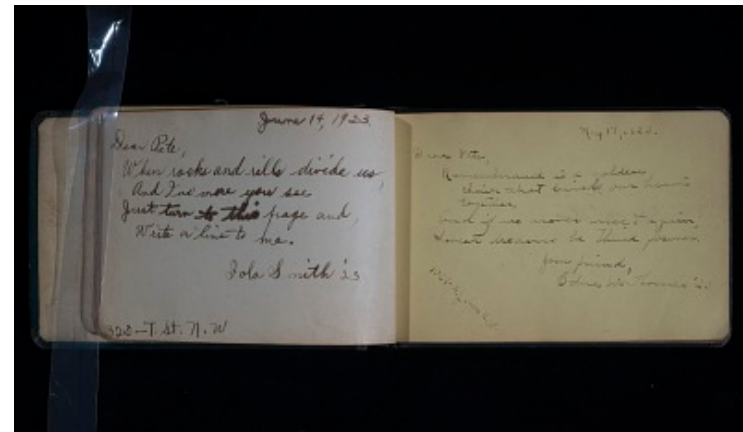 June 14, 1923.
Dear Pete,
When rocks and rills divide us,
And I no more you see
Just turn to this page and,
Write a line to me.
Iola Smith '23
328-T. St. N. W
May 17, 1923.
Dear Pete,
Remembrance is a golden
chain that binds our hearts
together,
and if we never meet again,
your friend,